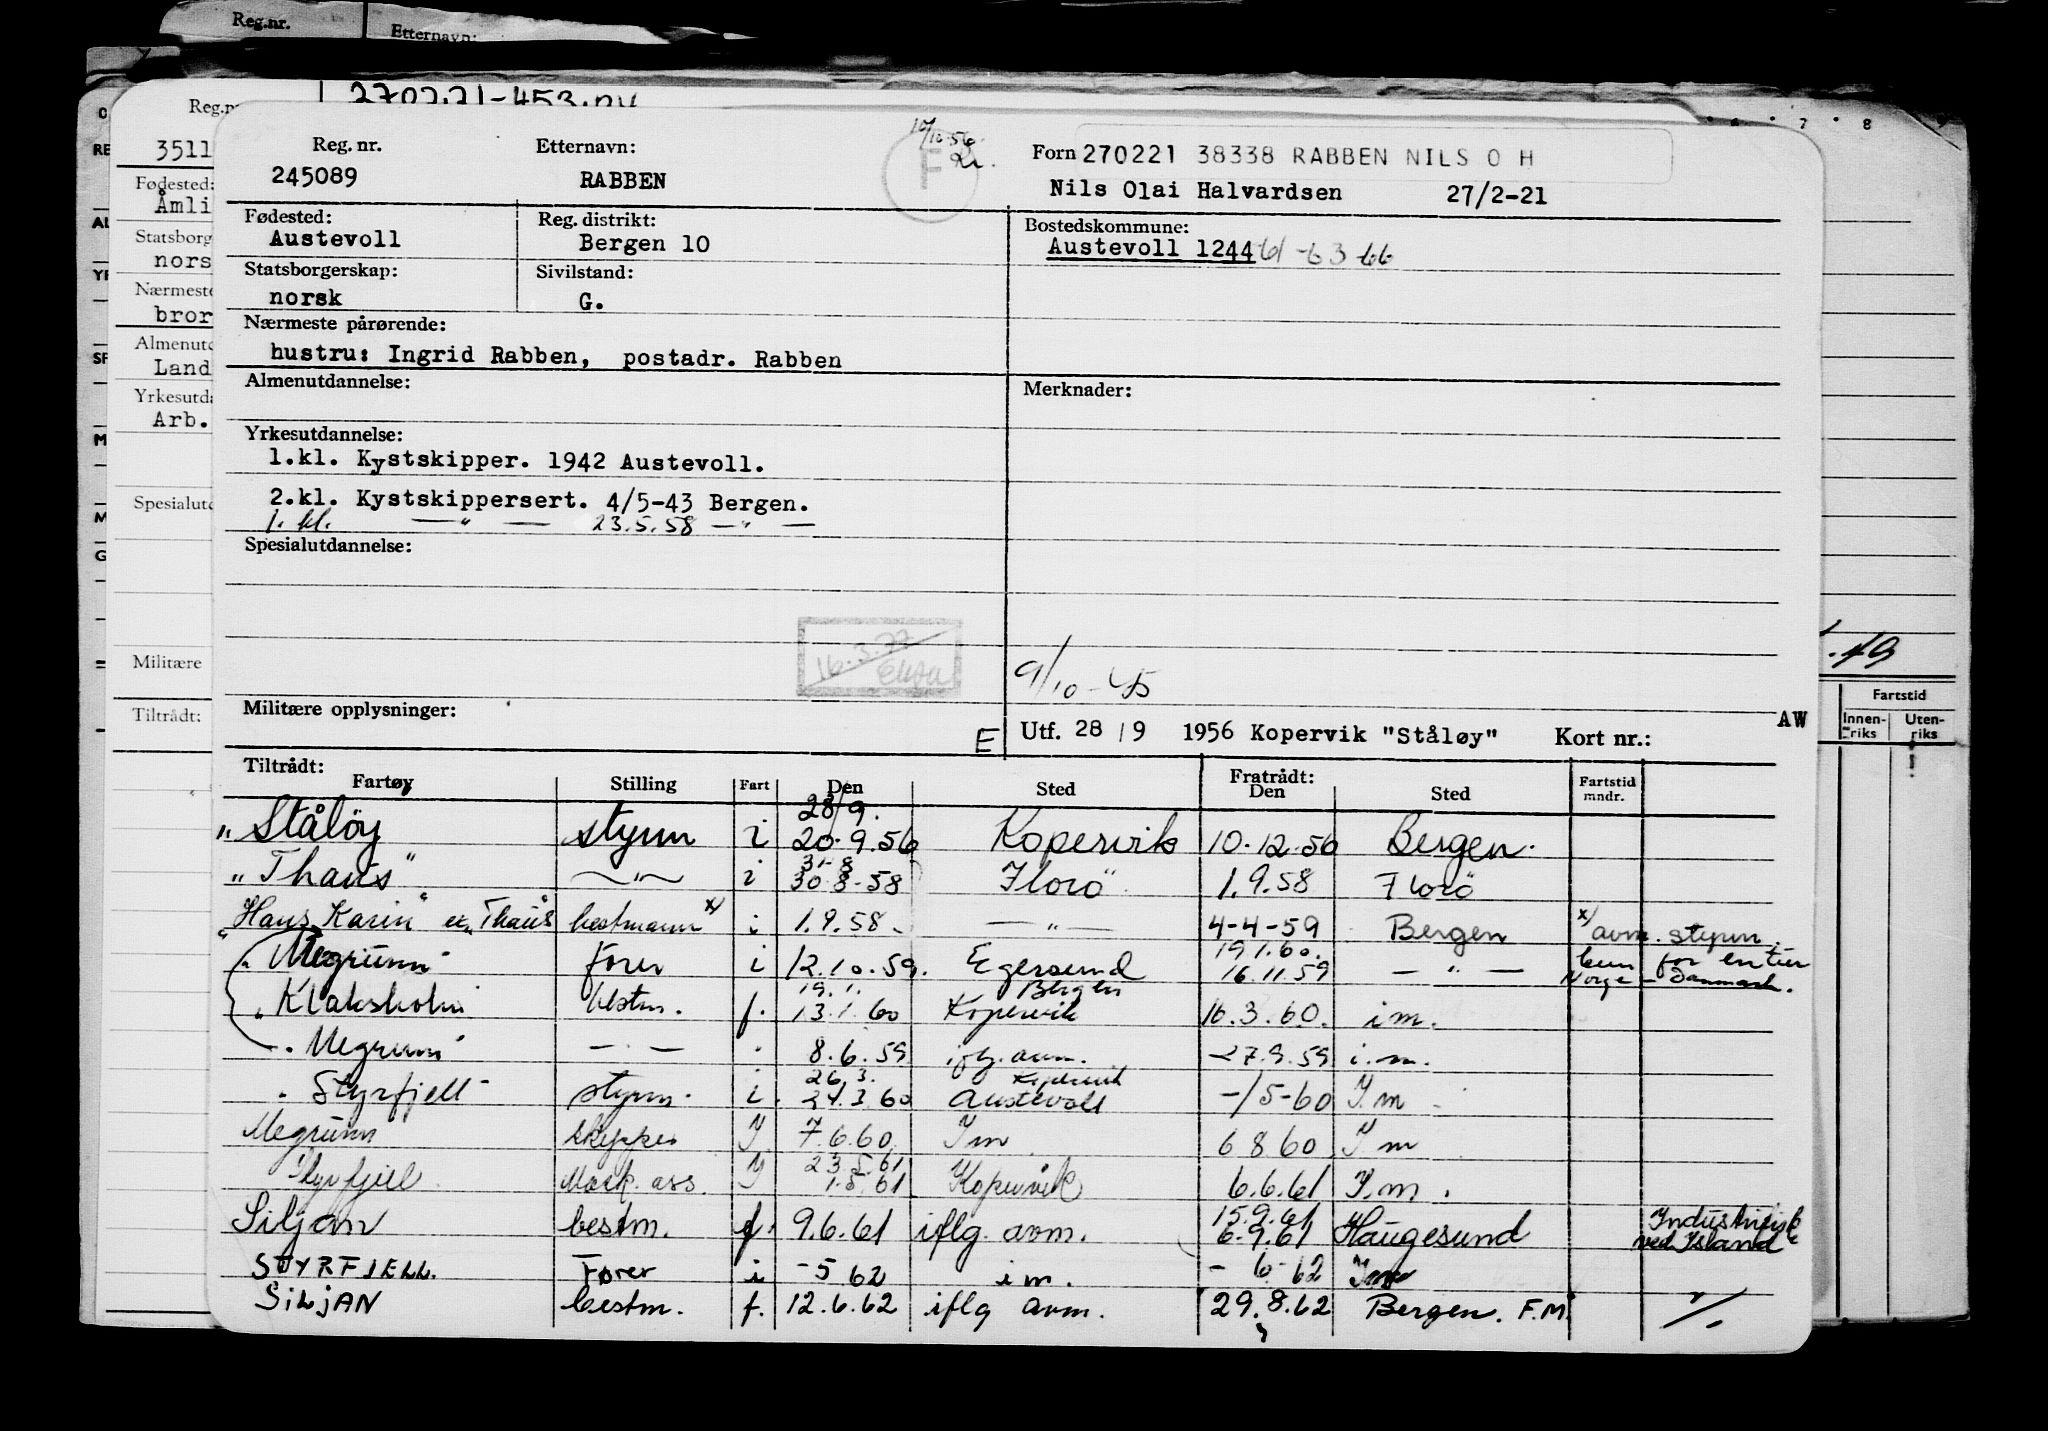 Reg.nr. Etternavn:
270221-453
Reg. nr. Etternavn: 10/10-56 Forn 270221 38338 RABBEN NILS O H
245089 RABBEN F Nils Olai Halvardsen 27/2-21
Fødested: Reg. distrikt: Bostedskommune:
Austevoll Bergen 10 Austevoll 1244 61-63 66
Statsborgerskap: Sivilstand:
norsk G.
Nærmeste pårørende:
hustru: Ingrid Rabben, postadr. Rabben
Almenutdannelse: Merknader:
Yrkesutdannelse:
1.kl. Kystskipper. 1942 Austevoll.
2.kl. Kystskippersert. 4/5-43 Bergen.
1. kl. — " — 23.5.58 — " —
Spesialutdannelse:
16.3.77
9/10-45
Militære opplysninger: E Utf. 28/9 1956 Kopervik "Ståløy" Kort nr.: AW
Tiltrådt: Fratrådt:
Fartøy Stilling Fart Den Sted Den Sted Fartstid mndr.
28/9.
"Ståløy styrm i 20.9.56 Kopervik 10.12.56 Bergen.
31-8
"Thaus" —"— i 30.8.58 Florö 1.9.58 Florö
"Hans Karin" ex "Thaus" bestmann x) i 1.9.58 — " — 4-4-59 Bergen x) avm. styrm
19.1.60. kun for en tur
"Megrunn" fører i 12.10.59. Egersund 16.11.59 — " — Norge - Danmark.
19.1. Bergen
"Klaksholm bestm. f. 13.1.60 Kopervik 16.3.60. i m.
"Megrunn" — " — " 8.6.59 iflg. avm. 27.9.59 i.m.
26.3. Kopervik
"Styrfjell" styrm. i. 24.3.60 Austevoll -/5-60 I m
Megrunn skipper I 7.6.60 I m 6 8 60 I m
23.5.61
Styrfjell Mask. ass. I 1.5.61 Kopervik 6.6.61 I.m.
15.9.61 Industrifisk
Siljan bestm. f. 9.6.61 iflg. avm. 6.9.61 Haugesund ved Island
STYRFJELL. Fører i -5 62 i m. - 6-62 Im
SiLjAN bestm. f. 12.6.62 iflg avm. 29.8.62 Bergen. F.M. " /.
Reg.nr
3511
Fødested:
Åmli
Statsborg
nors
Nærmeste
bror
Almenutd
Land
Yrkesutd
Arb.
Spesialutd
Militære
Tiltrådt:
7 8
.49
Fartstid
Innen-riks Uten-riks